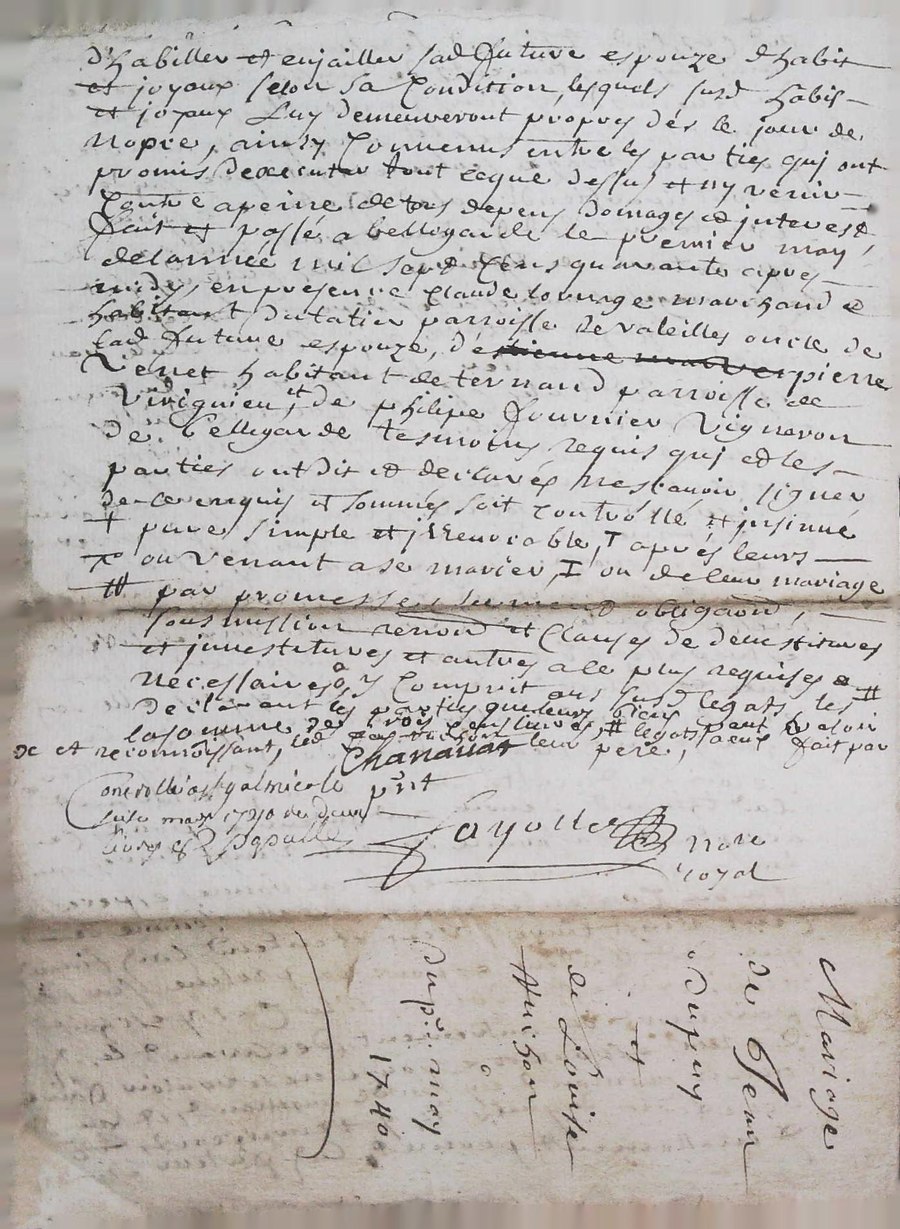 d'habiller et enjailler sad future espouze d'habit
et joyaux selon sa Condition, lesquels susd habis
et joyaux luy demeureront propres dés le jour de
nopce, ainsy Convenus entre les parties quj ont
promis dexecuter tout ceque dessus et ny venir
Contre apeine de tous depens domages et interest
fait et passé a bellegarde le premier may
delannée mil sept Cens quarante apres
midy en presence Claude marchand et
habitant parroisse de valeilles oncle de
lad future espouze, d'estienne pierre
Venet habitant de ternand parroisse de
Virignieu et de philipe fournier Vigneron
de bellegarde tesmoins requis quj et les
parties ont dit et declarés ne scavoir signer
de ce enquis et sommés soit controllé et insinué
+ pure simple et jrrevocable, après leurs
ou venant a se marier, ou de leur mariage
# par promesses serment obligaond,
soumission renond et Clauses de devestitures
et jnvestitures et autres a ce plus requises
necessaires, y Compris susd legats les
declarant les parties que leurs biens valoir
lasomme de trois Cens livres, # legats
et reconnoissant, leur pere, fait par
Chanauat
Controllé a st galmier le
may 1740
prit
Fayolle nore
royal
Mariage
de Jean
dupuy
et
de Louise
Thizon
du pr. may
1740